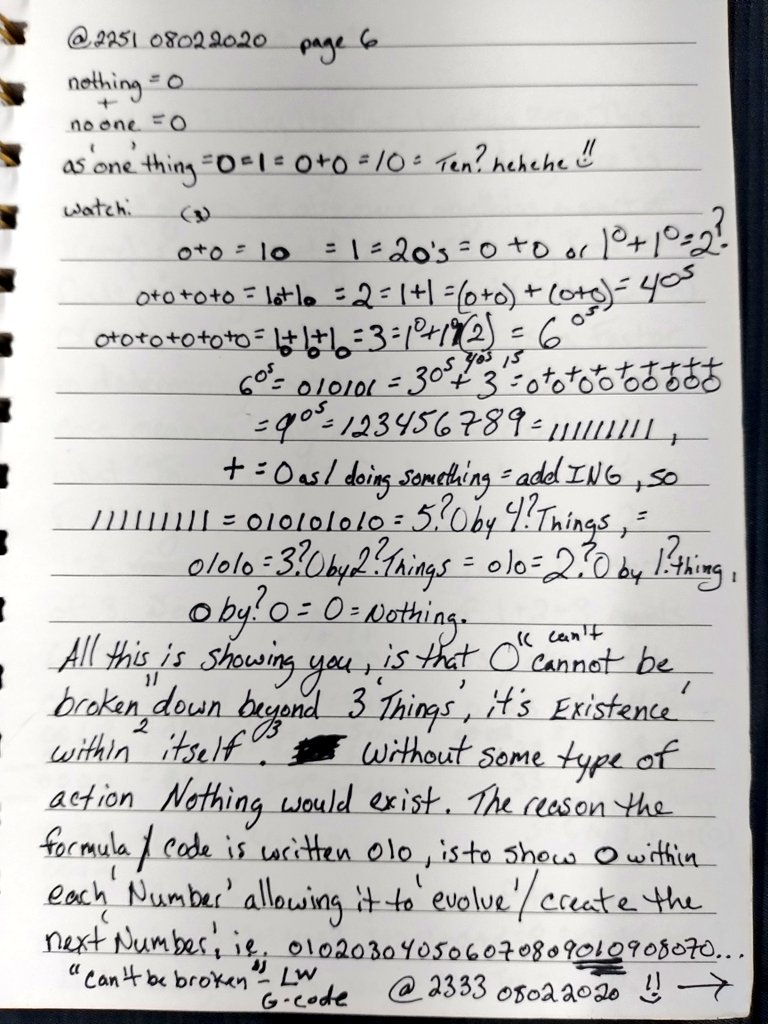 @2251 08022020 page 6
nothing = 0
+
no one = 0
as 'one' thing = 0 = 1 = 0+0 = 10 = Ten? hehehe
watch:
0+0 = 10 = 1 = 20's = 0+0 or 1⁰+1⁰=2?
0+0+0+0 = 10+10 = 2 = 1+1 = (0+0) + (0+0) = 40s
0+0+0+0+0+0 = 10+10+10 = 3 = 1⁰+1⁰(2) = 6 0s
6 0s = 010101 = 3 0s + 3 1s = 0+0+0+0+0+0+0+0+0+
= 9 0s = 123456789 = 111111111,
+ = 0 as / doing something = addING, so
111111111 = 010101010 = 5? 0 by 4? Things, =
01010 = 3? 0 by 2? Things = 010 = 2? 0 by 1? thing.
0 by? 0 = 0 = Nothing.
All this is showing you, is that 0 "can't cannot be
broken" down beyond 3 'Things', it's Existence'
within² itself⁰³. Without some type of
action Nothing would exist. The reason the
formula / code is written 010, is to show 0 within
each 'Number' allowing it to 'evolve' / create the
next 'Number', ie. 010203040506070809010908070...
"can't be broken" - LW
G-code
@ 2333 08022020 →